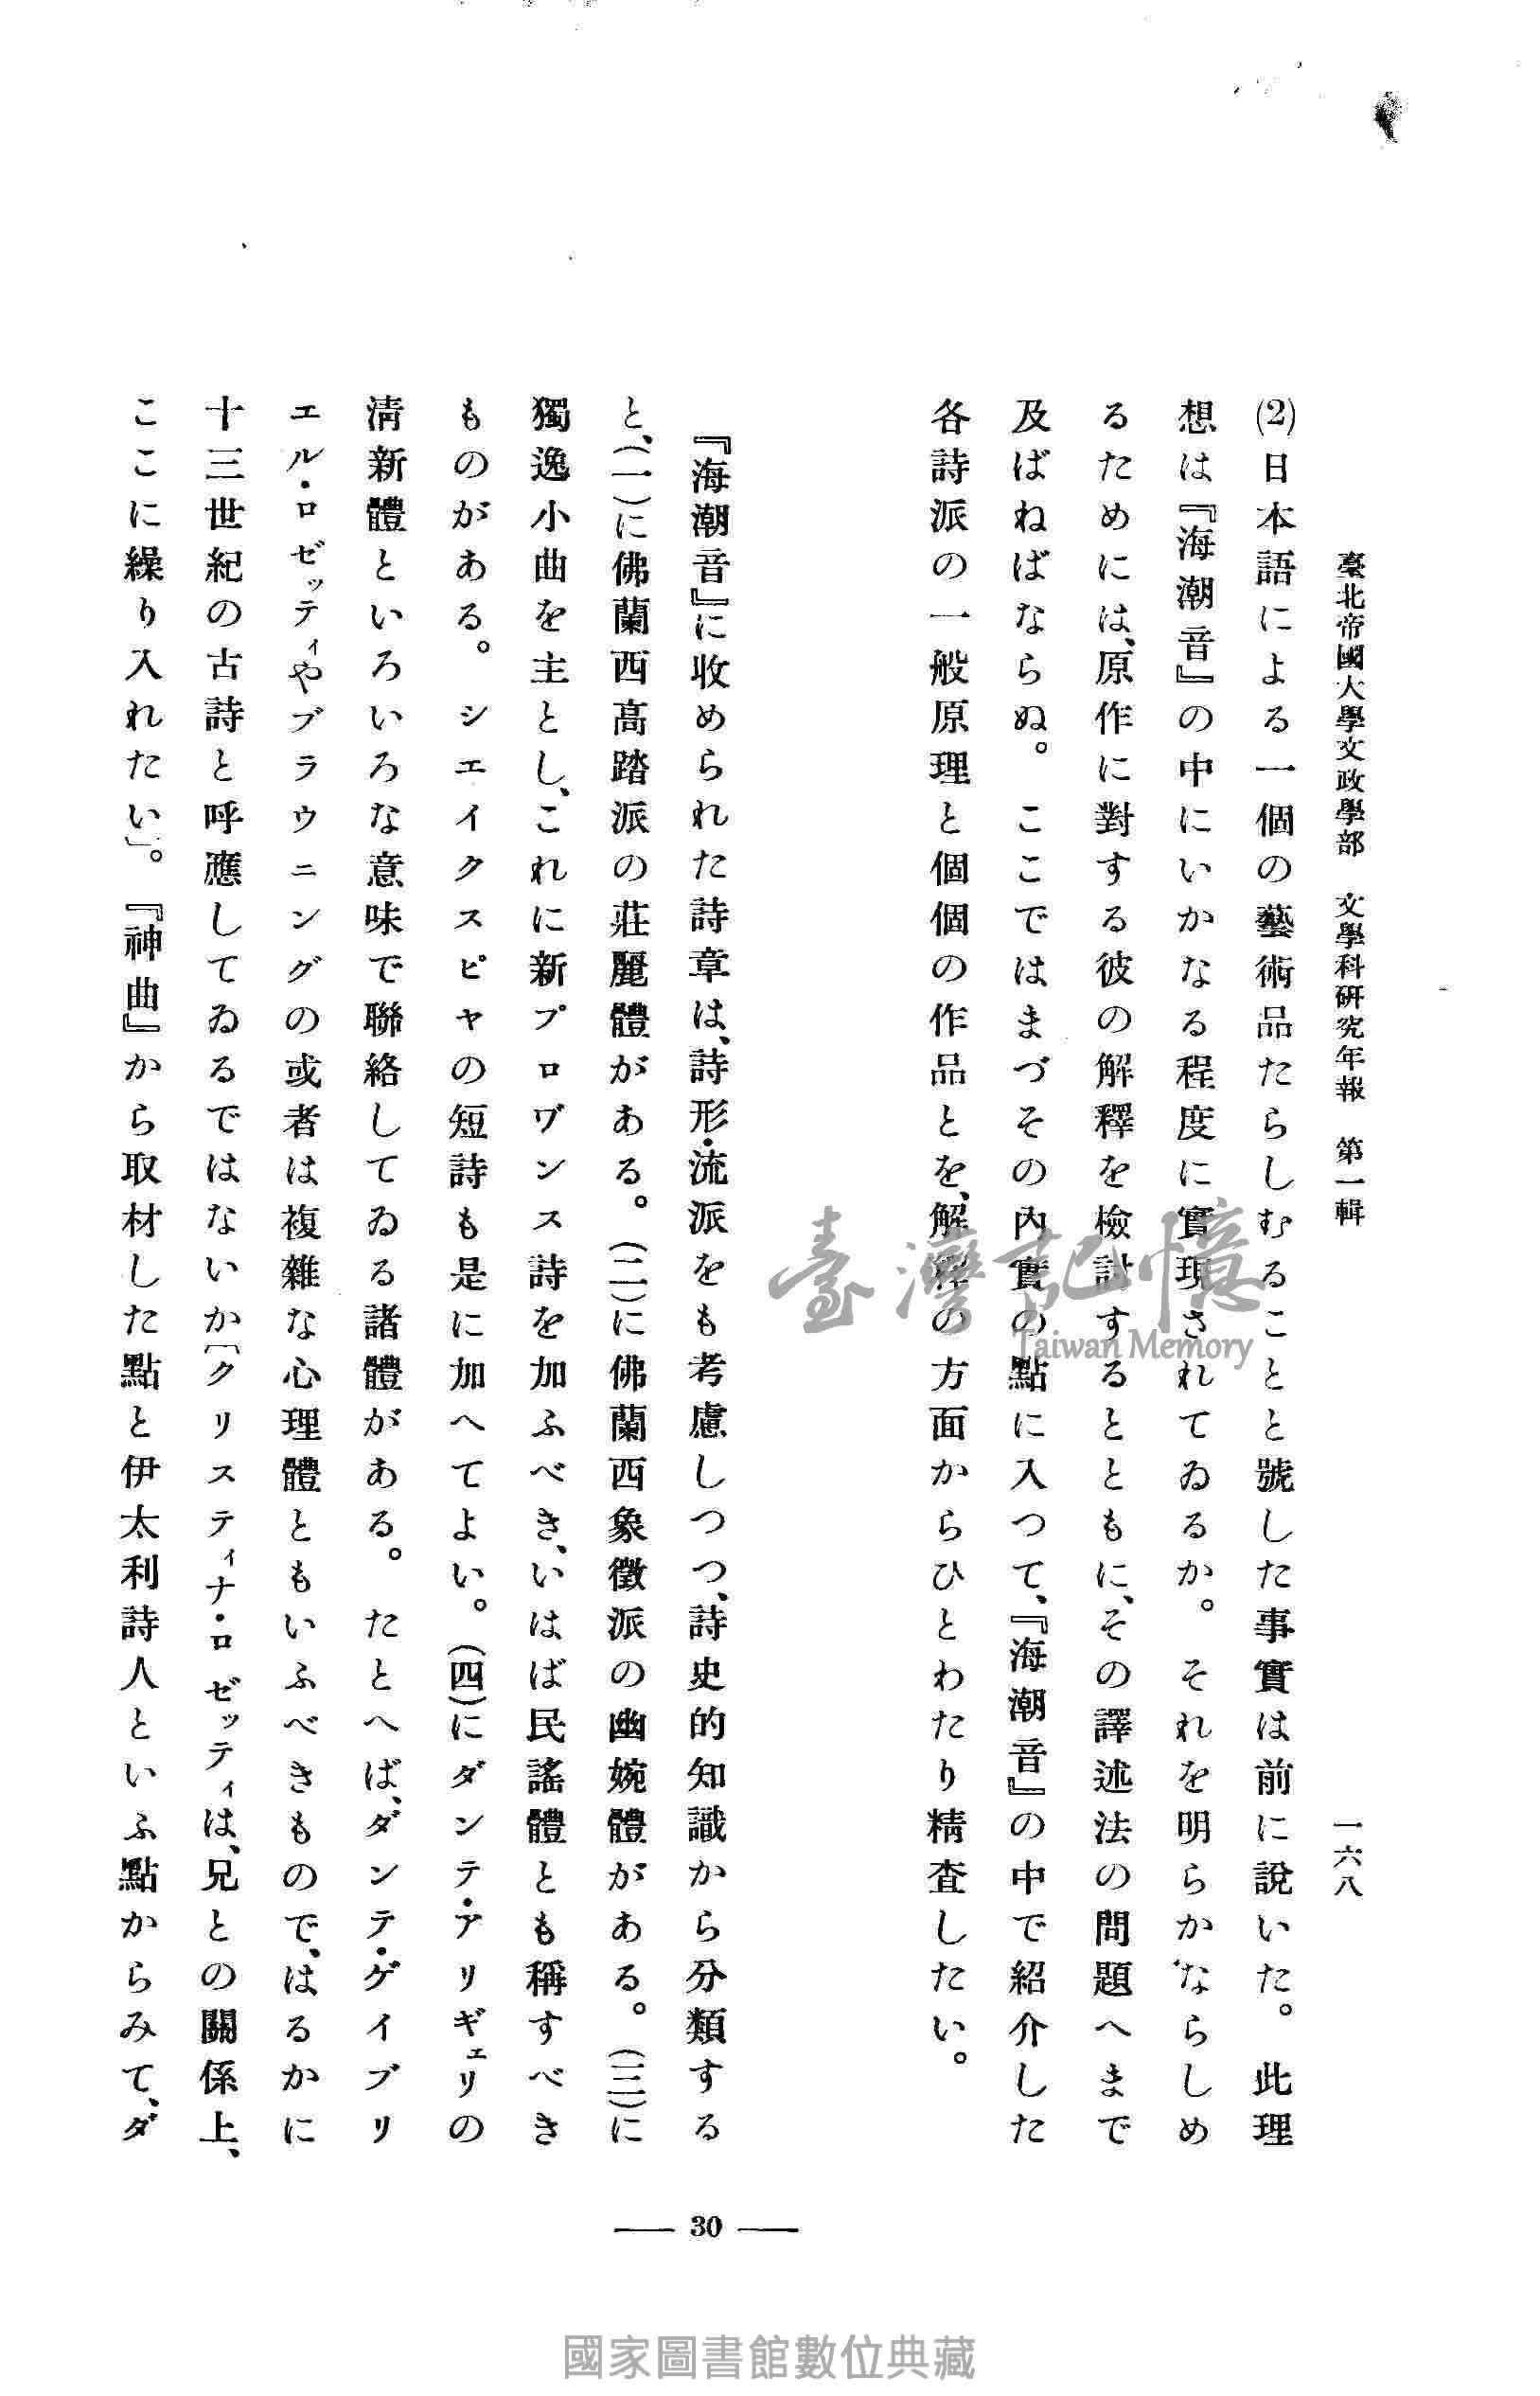 臺北帝國大學文政學部　文學科研究年報　第一輯　一六八
(2)日本語による一個の藝術品たらしむることと號した事實は前に說いた。　此理
想は『海潮音』の中にいかなる程度に實現されてゐるか。　それを明らかならしめ
るためには、原作に對する彼の解釋を檢討するとともに、その譯述法の問題へまで
及ばねばならぬ。　ここではまづその內實の點に入つて、『海潮音』の中で紹介した
各詩派の一般原理と個個の作品とを、解釋の方面からひとわたり精査したい。
『海潮音』に收められた詩章は、詩形・流派をも考慮しつつ、詩史的知識から分類する
と、(一)に佛蘭西高踏派の莊麗體がある。(二)に佛蘭西象徵派の幽婉體がある。(三)に
獨逸小曲を主とし、これに新プロヷンス詩を加ふべき、いはば民謠體とも稱すべき
ものがある。　シエイクスピヤの短詩も是に加へてよい。(四)にダンテ・アリギェリの
淸新體といろいろな意味で聯絡してゐる諸體がある。　たとへば、ダンテ・ゲイブリ
エル・ロゼッティやブラウニングの或者は複雜な心理體ともいふべきもので、はるかに
十三世紀の古詩と呼應してゐるではないか〔クリスティナ・ロゼッティは、兄との關係上、
ここに繰り入れたい」。『神曲』から取材した點と伊太利詩人といふ點からみて、ダ
30
臺灣記憶
Taiwan Memory
國家圖書館數位典藏